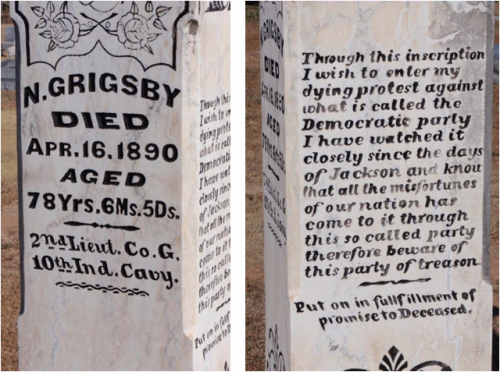 N. GRIGSBY
DIED
APR. 16. 1890
AGED
78 Yrs. 6 Ms. 5 Ds.
2nd Lieut. Co. G.
10th Ind. Cavy.
Through this inscription
I wish to enter my
dying protest against
what is called the
Democratic party
I have watched it
closely since the days
of Jackson and know
that all the misfortunes
of our nation has
come to it through
this so called party
therefore beware of
this party of treason
Put on in fullfillment of
promise to Deceased.